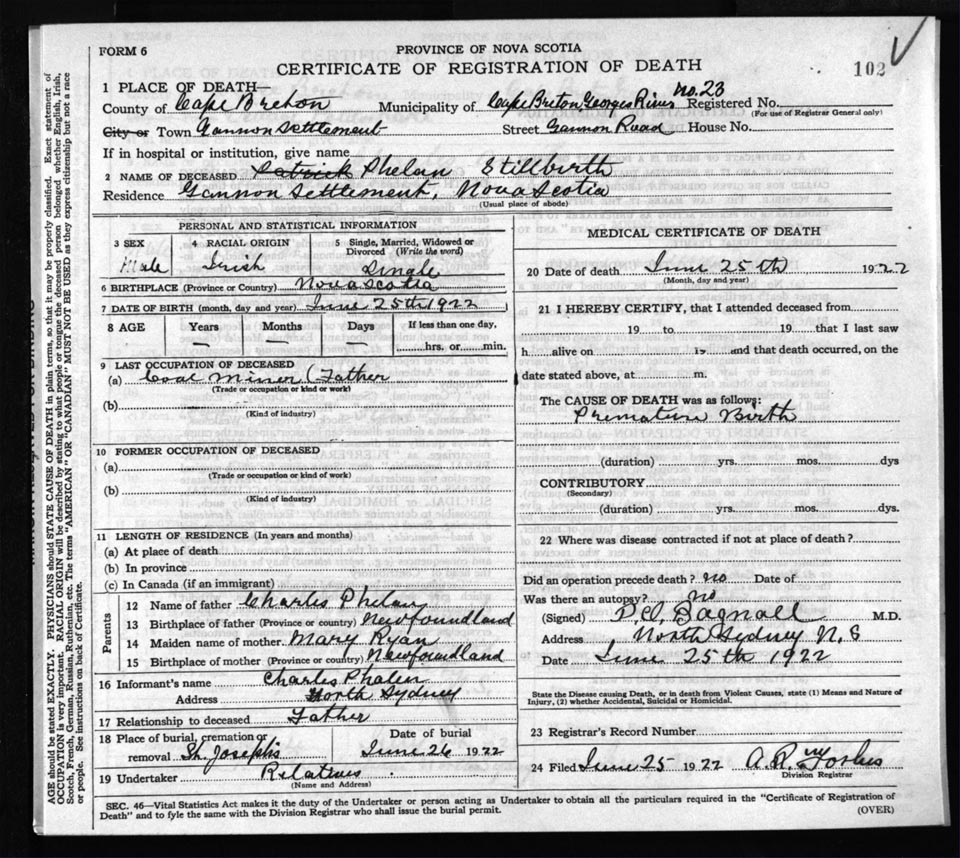 FORM 6
PROVINCE OF NOVA SCOTIA
CERTIFICATE OF REGISTRATION OF DEATH
102
1 PLACE OF DEATH—
no. 23
County of Cape Breton Municipality of Cape Breton Georges River Registered No.
(For use of Registrar General only)
City or Town Gannon Settlement Street Gannon Road House No.
If in hospital or institution, give name
2 NAME OF DECEASED Patrick Phelan Stillbirth
Residence Gannon Settlement, Nova Scotia
(Usual place of abode)
PERSONAL AND STATISTICAL INFORMATION
3 SEX 4 RACIAL ORIGIN Single, Married, Widowed or Divorced (Write the word)
Male Irish Single
6 BIRTHPLACE (Province or Country) Nova Scotia
7 DATE OF BIRTH (month, day and year) June 25th 1922
8 AGE Years Months Days If less than one day,
— — — hrs. or min.
9 LAST OCCUPATION OF DECEASED
(a) Coal Miner (Father
(Trade or occupation or kind of work)
(b)
(Kind of industry)
10 FORMER OCCUPATION OF DECEASED
(a)
(Trade or occupation or kind of work)
(b)
(Kind of industry)
11 LENGTH OF RESIDENCE (In years and months)
(a) At place of death
(b) In province
(c) In Canada (if an immigrant)
Parents
12 Name of father Charles Phelan
13 Birthplace of father (Province or country) Newfoundland
14 Maiden name of mother Mary Ryan
15 Birthplace of mother (Province or country) Newfoundland
16 Informant's name Charles Phalen
Address North Sydney
17 Relationship to deceased Father
18 Place of burial, cremation or removal St. Josephs Date of burial June 26 1922
19 Undertaker Relatives
(Name and Address)
MEDICAL CERTIFICATE OF DEATH
20 Date of death June 25th 1922
(Month, day and year)
21 I HEREBY CERTIFY, that I attended deceased from
19 to 19 that I last saw
h alive on 19 and that death occurred, on the
date stated above, at m.
The CAUSE OF DEATH was as follows:
Premature Birth
(duration) yrs. mos. dys
CONTRIBUTORY
(Secondary)
(duration) yrs. mos. dys.
22 Where was disease contracted if not at place of death?
Did an operation precede death? no Date of
Was there an autopsy? no
(Signed) Bagnall M.D.
Address North Sydney N.S
Date June 25th 1922
State the Disease causing Death, or in death from Violent Causes, state (1) Means and Nature of
Injury, (2) whether Accidental, Suicidal or Homicidal.
23 Registrar's Record Number
24 Filed June 25 1922 A. R. Forbes
Division Registrar
SEC. 46—Vital Statistics Act makes it the duty of the Undertaker or person acting as Undertaker to obtain all the particulars required in the "Certificate of Registration of
Death" and to fyle the same with the Division Registrar who shall issue the burial permit.
(OVER)
AGE should be stated EXACTLY. PHYSICIANS should STATE CAUSE OF DEATH in plain terms, so that it may be properly classified. Exact statement of
OCCUPATION is very important. RACIAL ORIGIN will be described by stating to what people or tongue the deceased person belonged whether English, Irish,
Scotch, French, German, Russian, Ruthenian, etc. The terms "AMERICAN" OR "CANADIAN" MUST NOT BE USED as they express citizenship but not a race
or people. See instructions on back of Certificate.